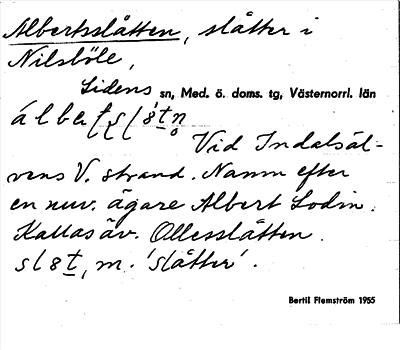 Albertsslåtten, slåtter i
Nilsböle,
Lidens sn, Med. ö. doms. tg, Västernorrl. län
Vid Indalsäl-
vens V. strand. Namn efter
en nuv. ägare Albert Lodin.
Kallas äv. Ollesslåtten.
m. 'slåtter'.
Bertil Flemström 1955